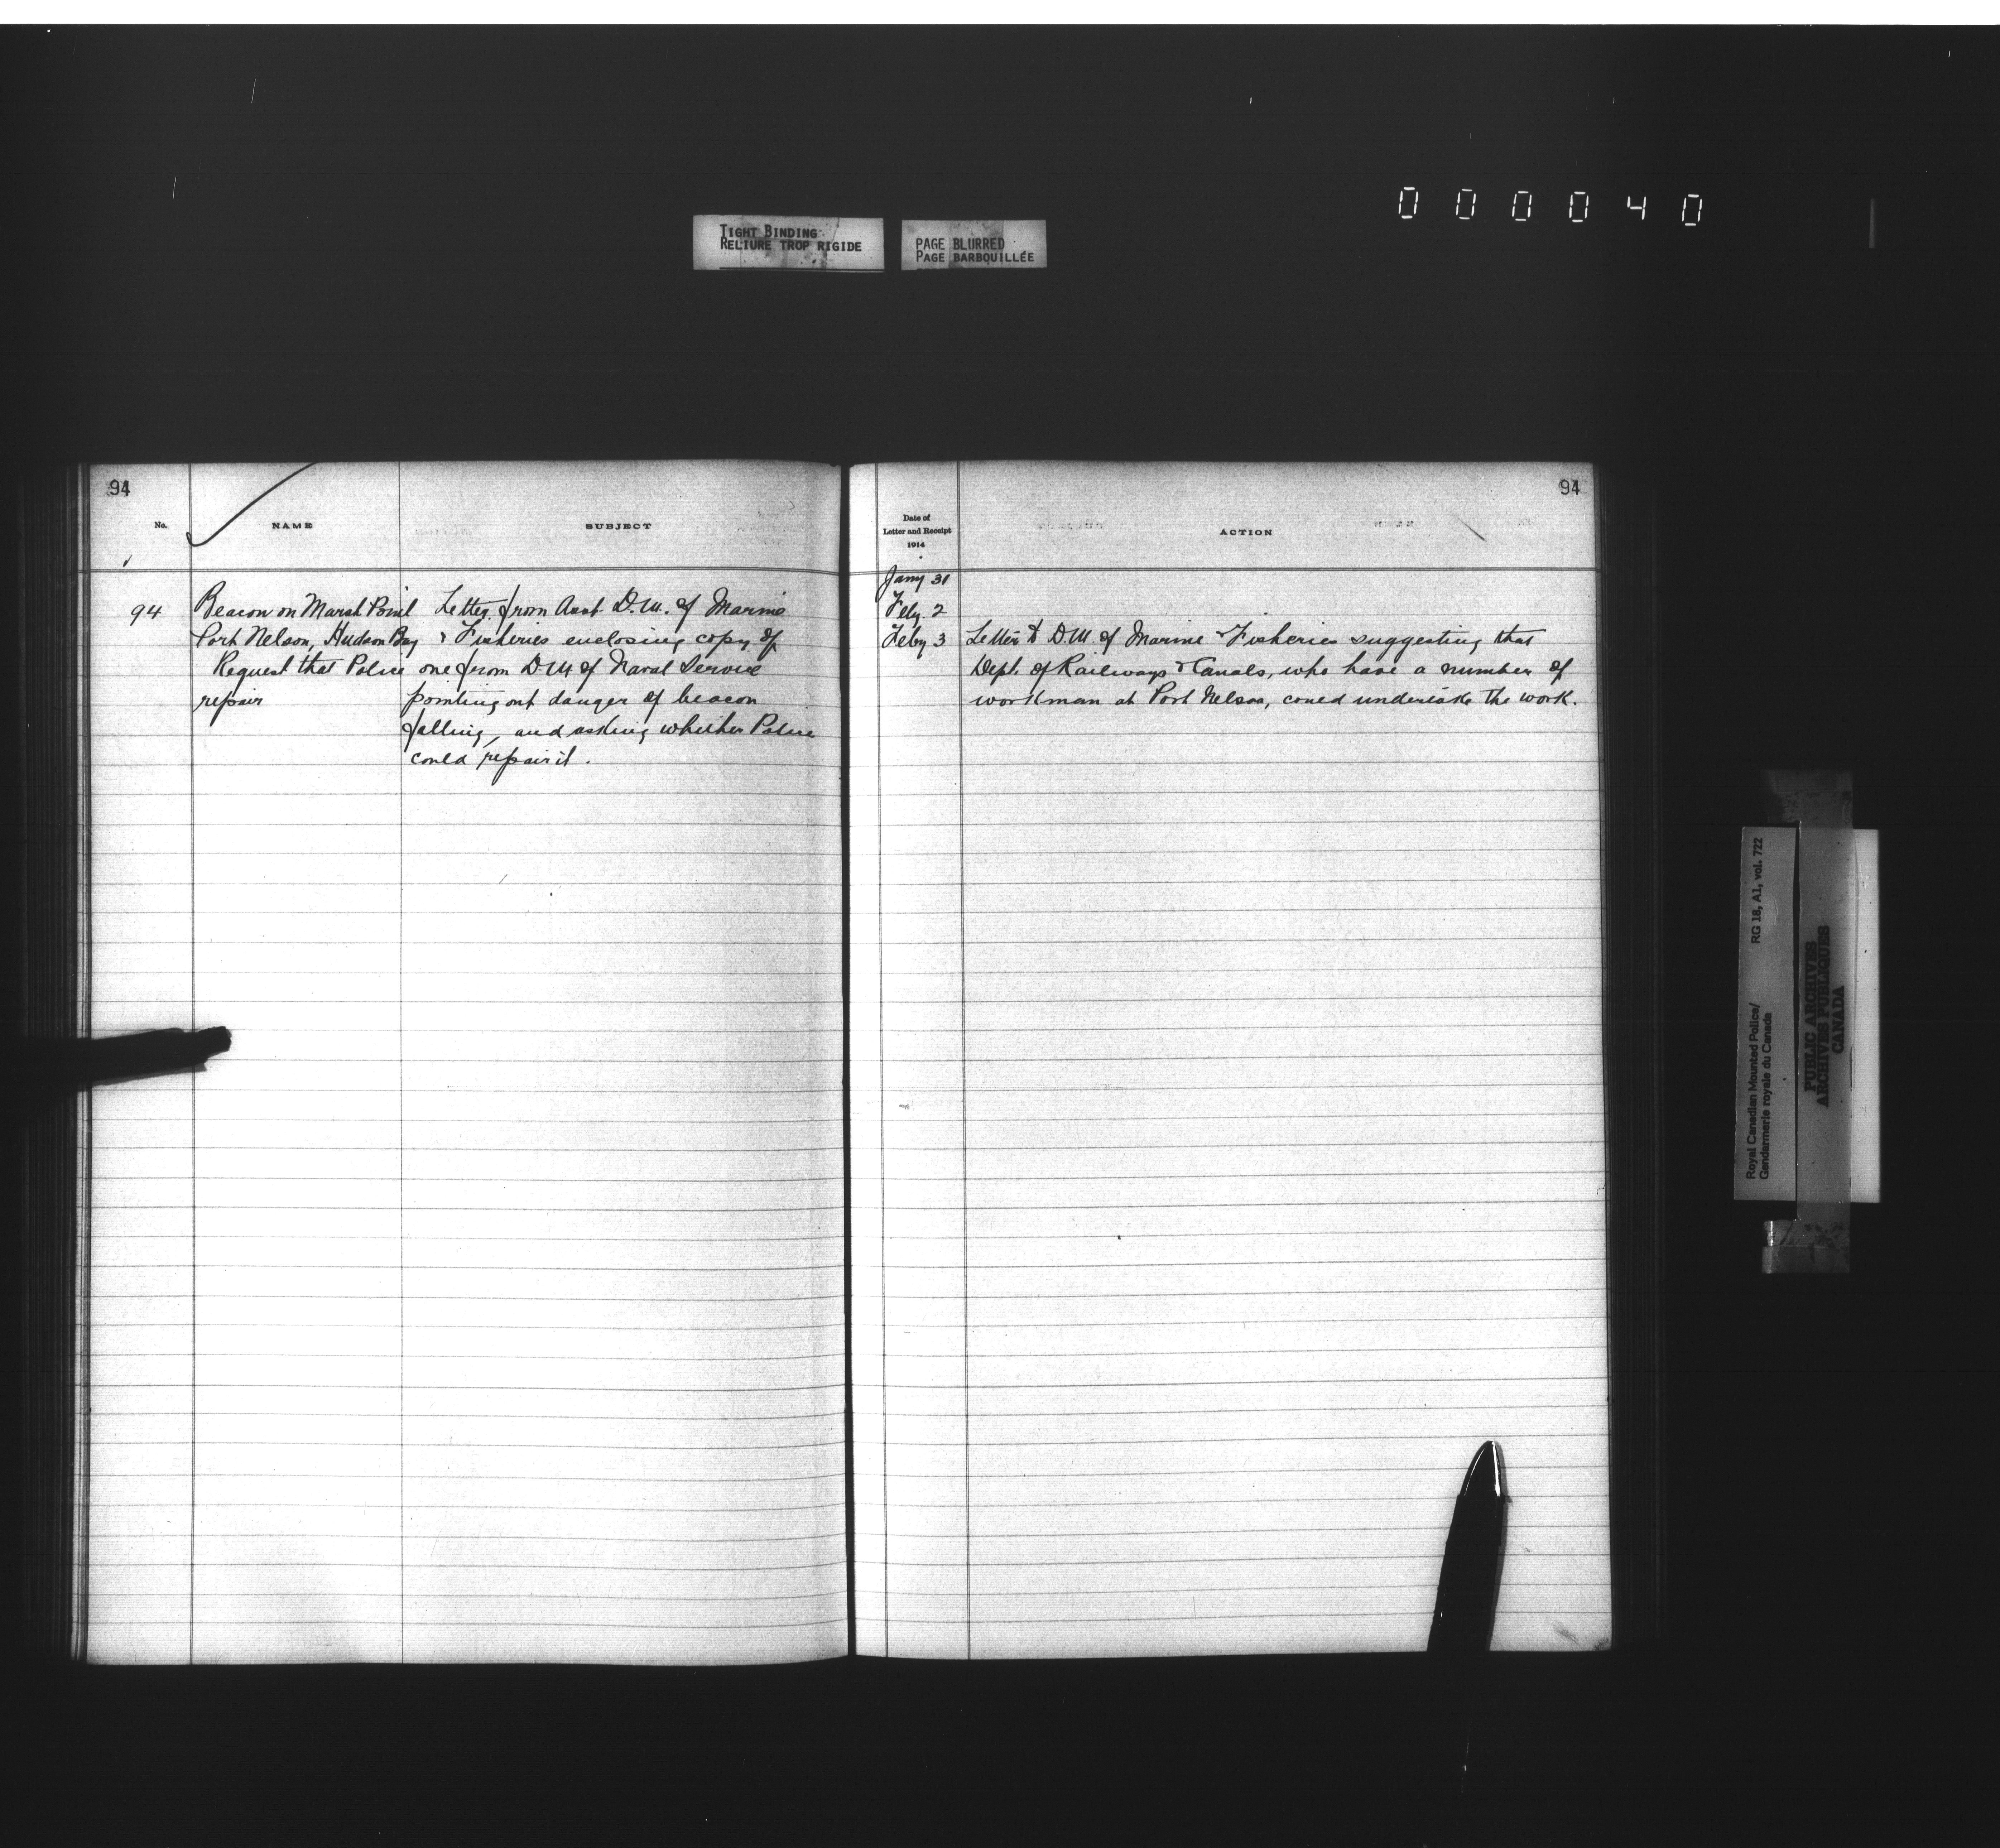 0 0 0 0 4 0
TIGHT BINDING
RELIURE TROP RIGIDE
PAGE BLURRED
PAGE BARBOUILLÉE
94
No.
NAME
SUBJECT
94 Beacon on Marsh Point
Port Nelson, Hudson Bay
Request that Police
repair
Letter from Asst. D.M. of Marine
& Fisheries enclosing copy of
one from D.M of Naval Service
pointing out danger of beacon
falling, and asking whether Police
could repair it.
94
Date of
Letter and Receipt
1914
ACTION
Jany 31
Feby. 2
Feby 3 Letter to D.M of Marine & Fisheries suggesting that
Dept. of Railways & Canals, who have a number of
workman at Port Nelson, could undertake the work.
Royal Canadian Mounted Police/
Gendarmerie royale du Canada
RG 18, A1, vol. 722
PUBLIC ARCHIVES
ARCHIVES PUBLIQUES
CANADA